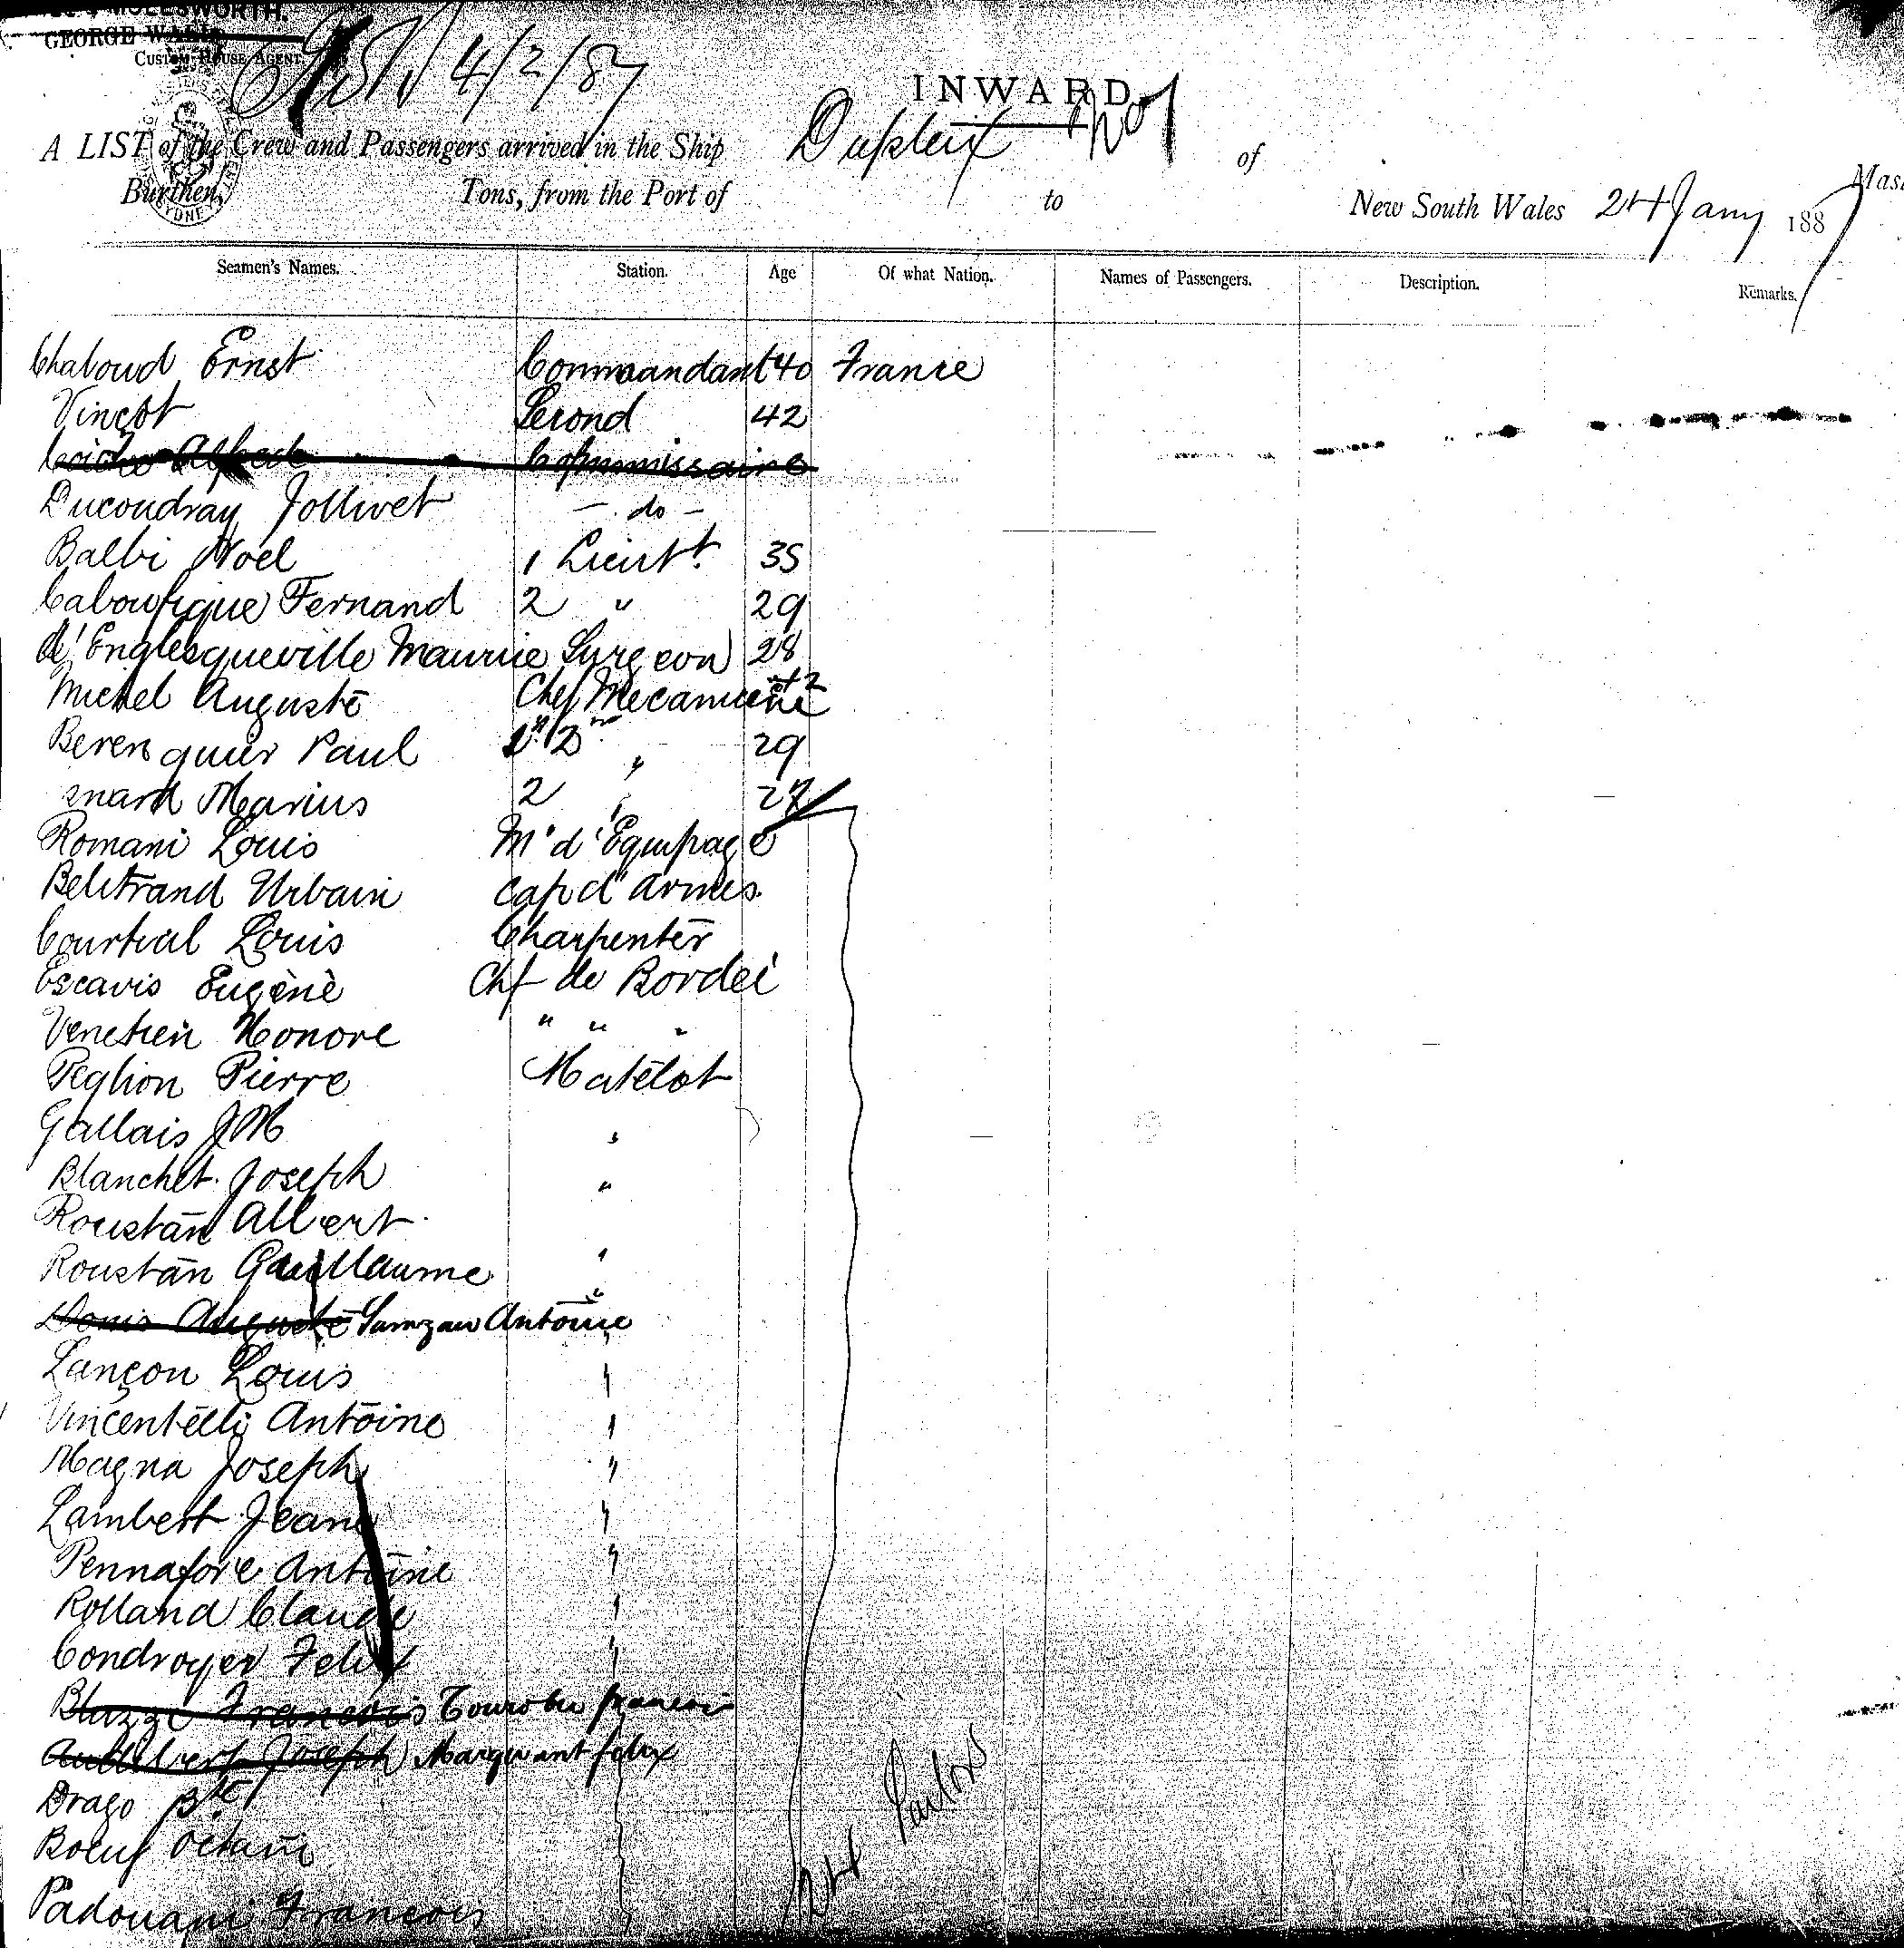 MOLESWORTH.
GEORGE
CUSTOM HOUSE AGENT
4/2/87
INWARD
A LIST of the Crew and Passengers arrived in the Ship Dupleix No 1 of
Burthen, Tons, from the Port of to New South Wales 24 Jany 1887
Seamen's Names. Station. Age Of what Nation. Names of Passengers. Description. Remarks.
Chaboud Ernst Commandant 40 France
Vincot Second 42
Alfred Commissaire
Ducoudray Jollivet - do -
Balbi Noel 1 Lieutt. 35
Caboufigue Fernand 2 " 29
d'Englesqueville Maurice Surgeon 28
Michel Auguste Chef Mecanicien 42
Berenguier Paul 2 " 29
Marius 2 " 27
Romani Louis M. d'Equipage
Beltrand Urbain Cap d'Armes
Courtial Louis Charpenter
Escavis Eugène Chf de Bordei
Venetien Honore " " "
Peglion Pierre Matelot
Gallais JM "
Blanchet Joseph "
Roustan Albert
Roustan Guillaume "
Donis Auguste Samzau Antoine "
Lançon Louis "
Vincentelli Antoine "
Magna Joseph "
Lambert Jean "
Pennafore Antoine "
Rolland Claude "
Condroyer Felix "
Blazze Francois francois
Audibert Joseph Marquant felix
Drago Bte
Boeuf Octave
Padouani Francois